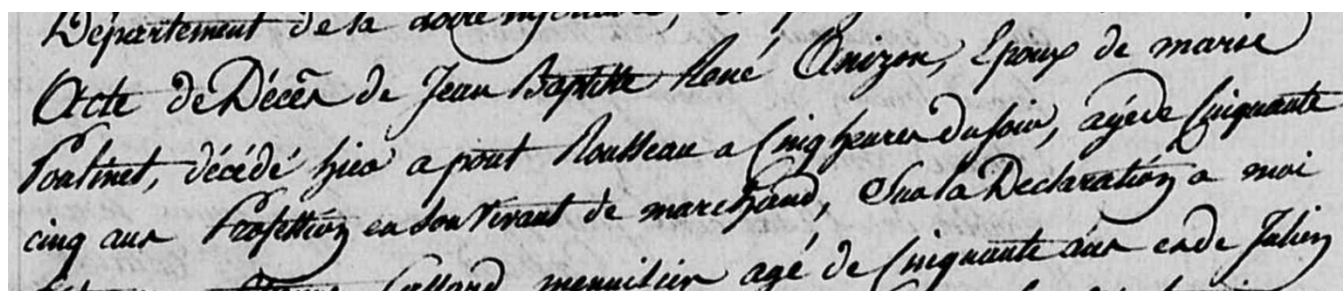 Département de la Loire inférieure,
Acte de Décès de Jean Baptiste René Anizon, Epoux de marie
Poutinet, décédé hier a pont Rousseau a Cinq heures du soir, agé de Cinquante
cinq ans Profession en son Vivant de marchand, Sur la Déclaration a moi
menuisier agé de Cinquante ans et de Julien